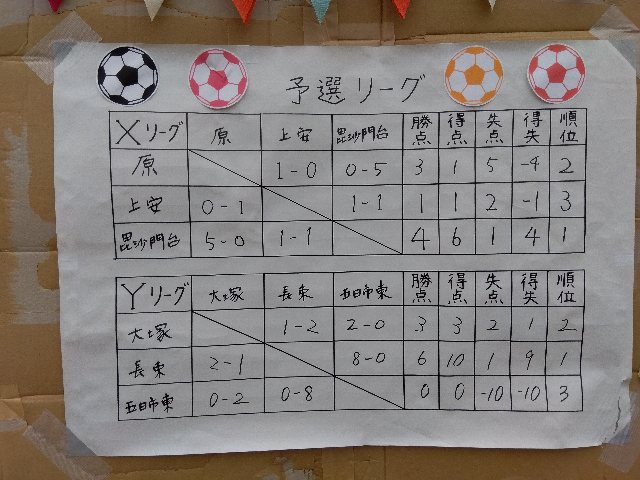 予選リーグ
Xリーグ 原 上安 毘沙門台 勝点 得点 失点 得失 順位
原 1-0 0-5 3 1 5 -4 2
上安 0-1 1-1 1 1 2 -1 3
毘沙門台 5-0 1-1 4 6 1 4 1
Yリーグ 大塚 長束 五日市東 勝点 得点 失点 得失 順位
大塚 1-2 2-0 3 3 2 1 2
長束 2-1 8-0 6 10 1 9 1
五日市東 0-2 0-8 0 0 -10 -10 3